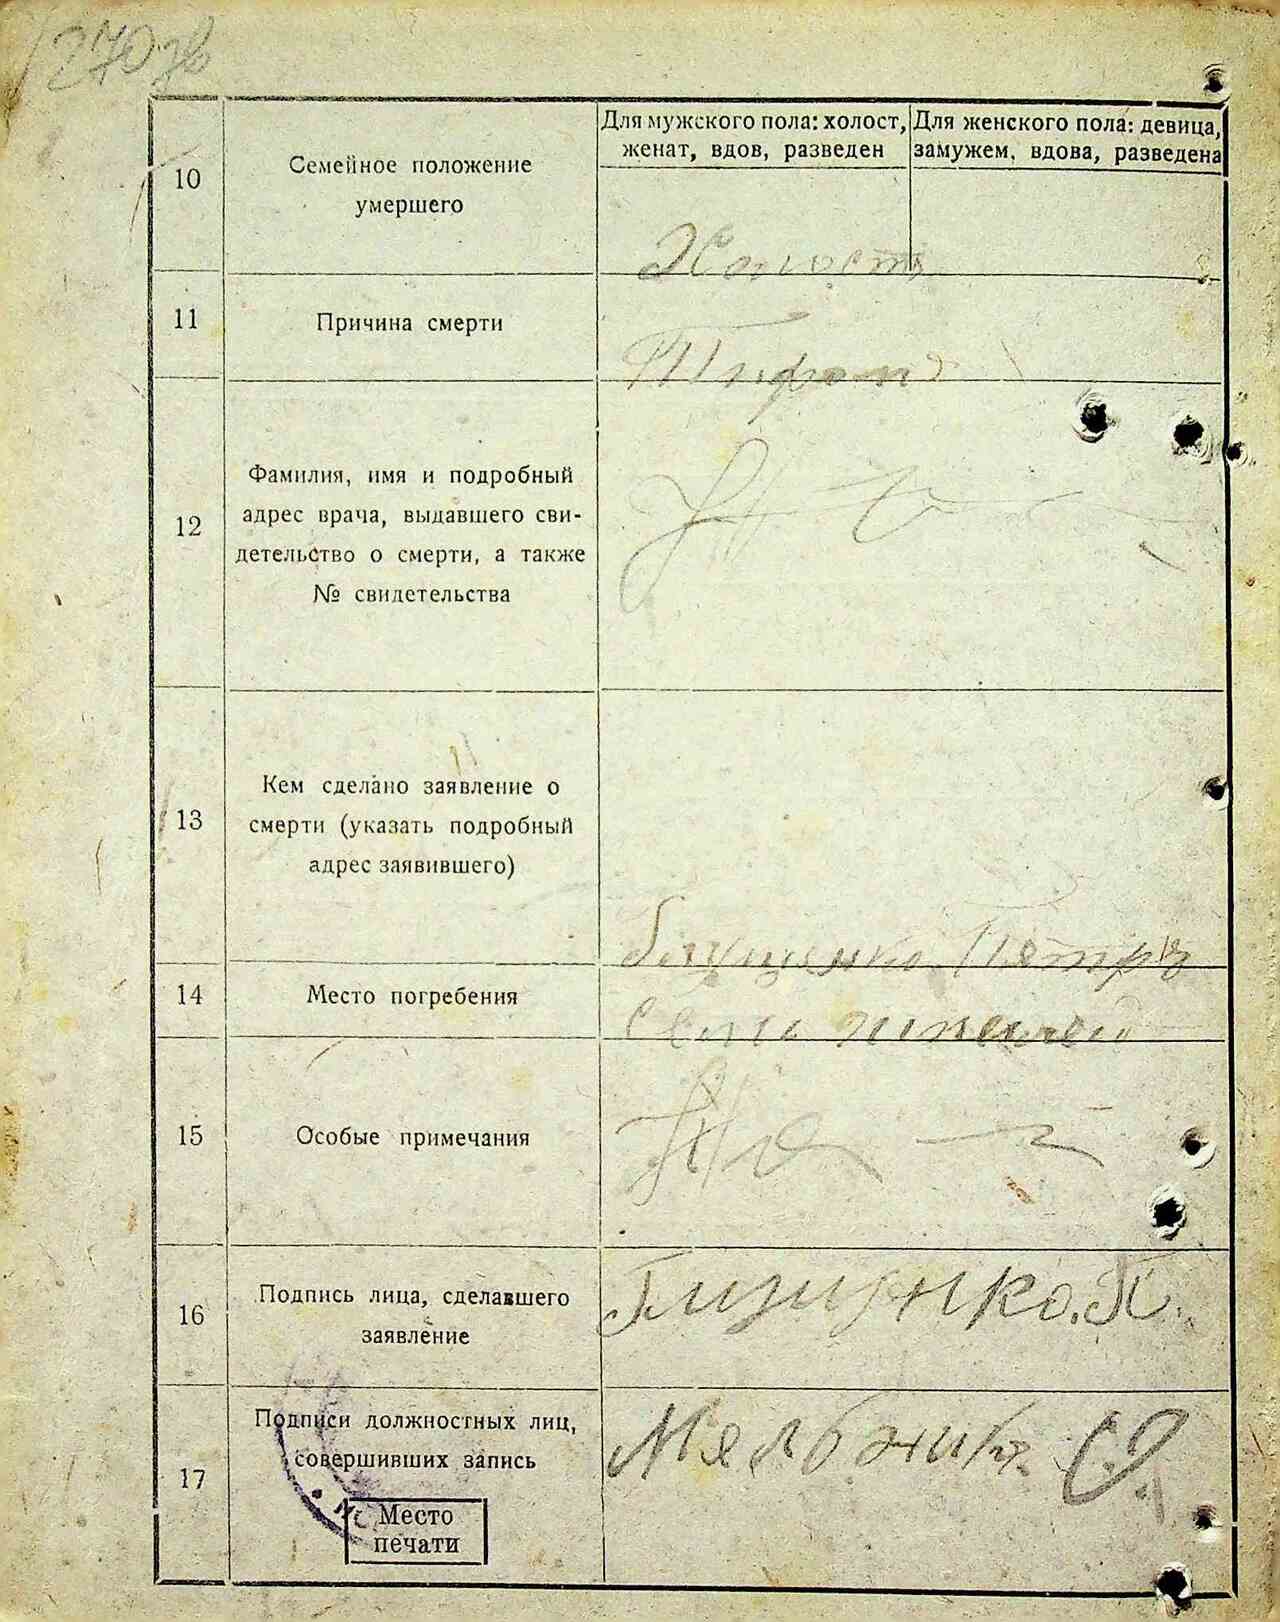 270 об
Для мужского пола: холост,
женат, вдов, разведен
Для женского пола: девица,
замужем, вдова, разведена
10
Семейное положение
умершего
Холость
11
Причина смерти
Тифом
12
Фамилия, имя и подробный
адрес врача, выдавшего сви-
детельство о смерти, а также
№ свидетельства
13
Кем сделано заявление о
смерти (указать подробный
адрес заявившего)
Пятрь
14
Место погребения
15
Особые примечания
16
Подпись лица, сделавшего
заявление
17
Подписи должностных лиц,
совершивших запись
Место
печати